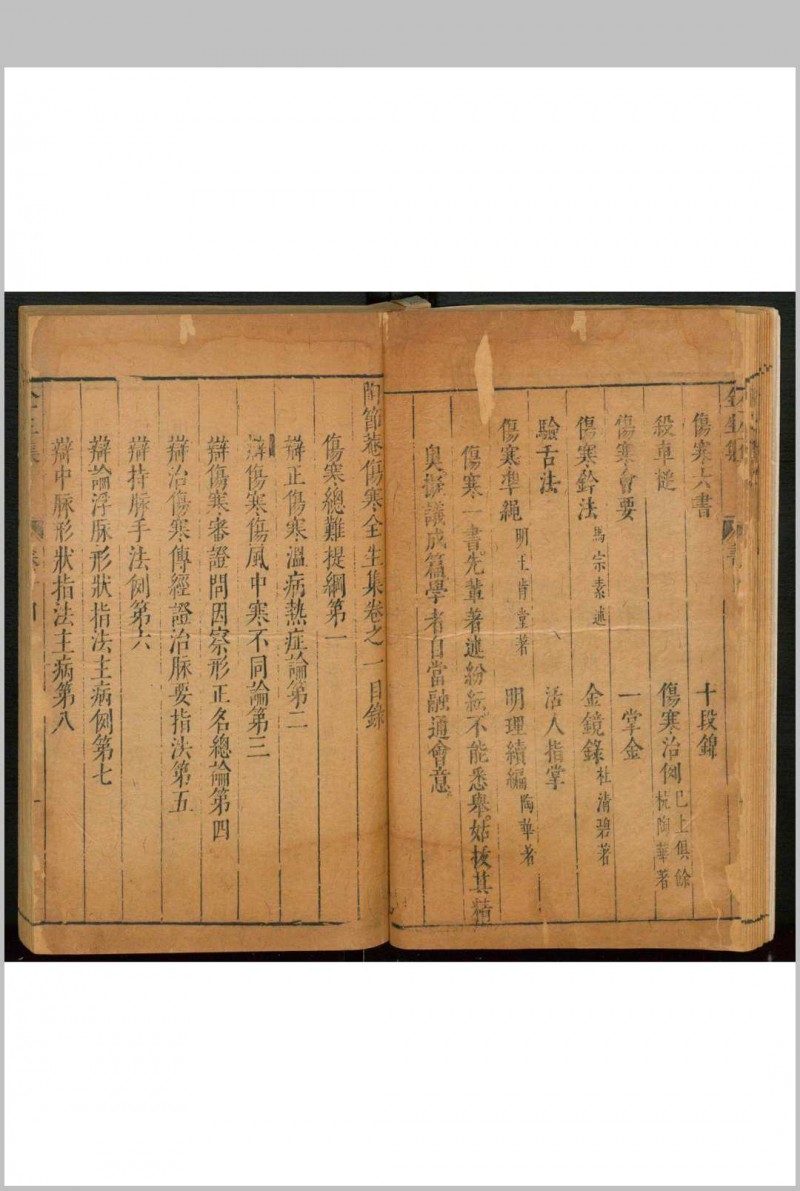 傷寒六書　十段錦
殺車槌　傷寒治例已上俱餘杭陶華著
傷寒會要　一掌金
傷寒鈐法馬宗素述　金鏡錄杜清碧著
驗舌法　活人指掌
傷寒準繩明王肯堂著　明理續編陶華著
傷寒一書先輩著述紛紜不能悉舉姑拔其精
奧擬議成篇學者自當融通會意
陶節菴傷寒全生集卷之一目錄
傷寒總難提綱第一
辯正傷寒溫病熱症論第二
辯傷寒傷風中寒不同論第三
辯傷寒審證問因察形正名總論第四
辯治傷寒傳經證治脉要指法第五
辯持脉手法例第六
辯論浮脉形狀指法主病例第七
辯中脉形狀指法主病第八